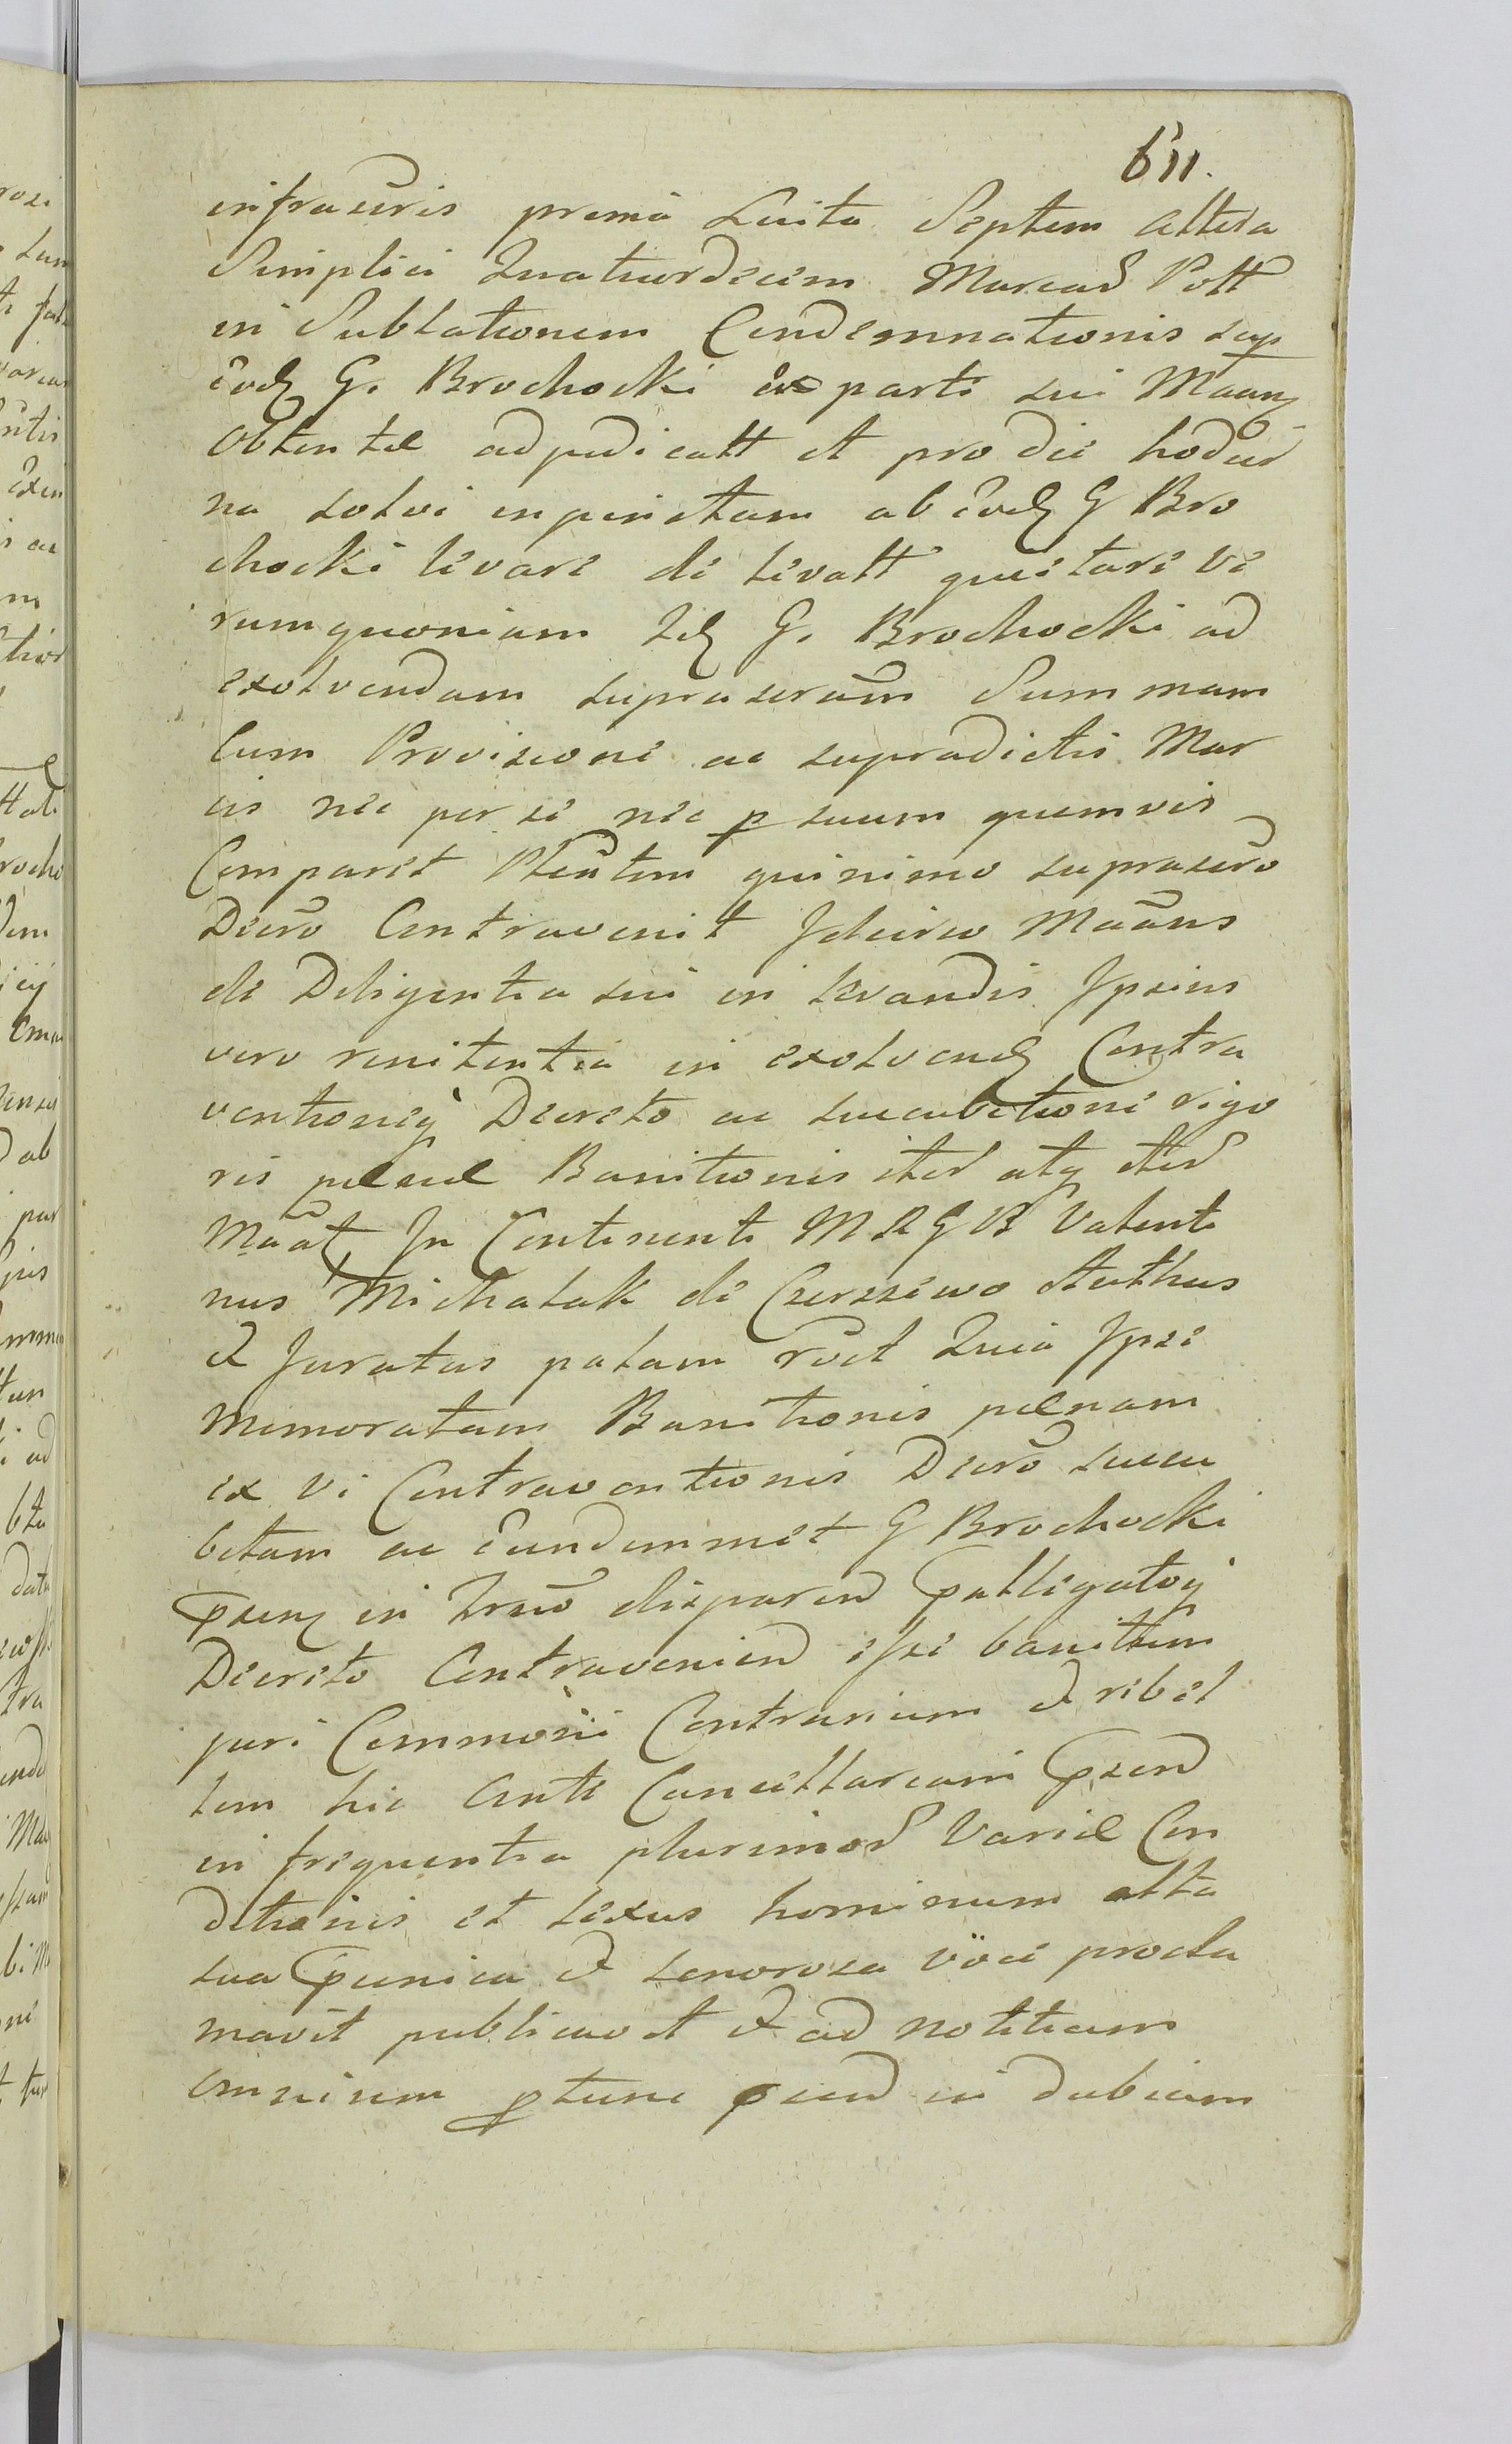 611.
infrascris prema Luita Septem altera
Simplici Quatuordecim Marcas Poll
in Sublationem Condemnationis sup
eodq G. Brochocki ex parte sui Maanq
obtentæ adjudicatt et pro die hodier
na solvi inpinctam ab eodq G Bro
chocki levare de levatt quietare ve
rumquoniam Idq G. Brochocki ad
exolvendam suprascram Summam
Cum Provisione ac supradictis Mar
cis nec per se nec p suum quemvis
Comparet Pleñtem quinimo suprascro
Decro Contravenit Idcirco Maans
de Diligentia sui in levandis Ipsius
vero renitentia in exolvendq Contra
ventioneq Decreto ac succubitione rigo
ris pænæ Banitionis iter atq iter
Maat In Continenti M R G B Valenti
nus Michalak de Czerssewo Authus
et Juratus palam recl Quia Ipse
Memoratam Banitionis pænam
ex vi Contraventionis Decro succu
bitam ac Eundemmet G Brochocki
psenq in Trno disparend palligatoq
Decreto Contravenien esse banitum
juri Commoni Contrarium et rebel
lem hic Ante Cancellariam psend
in frequentia plurimor Variæ Con
ditionis et sexus hominum alta
sua punica et sonorosa voce procla
mavit publicavit et ad notitiam
omnium ptunc psend in dubiam